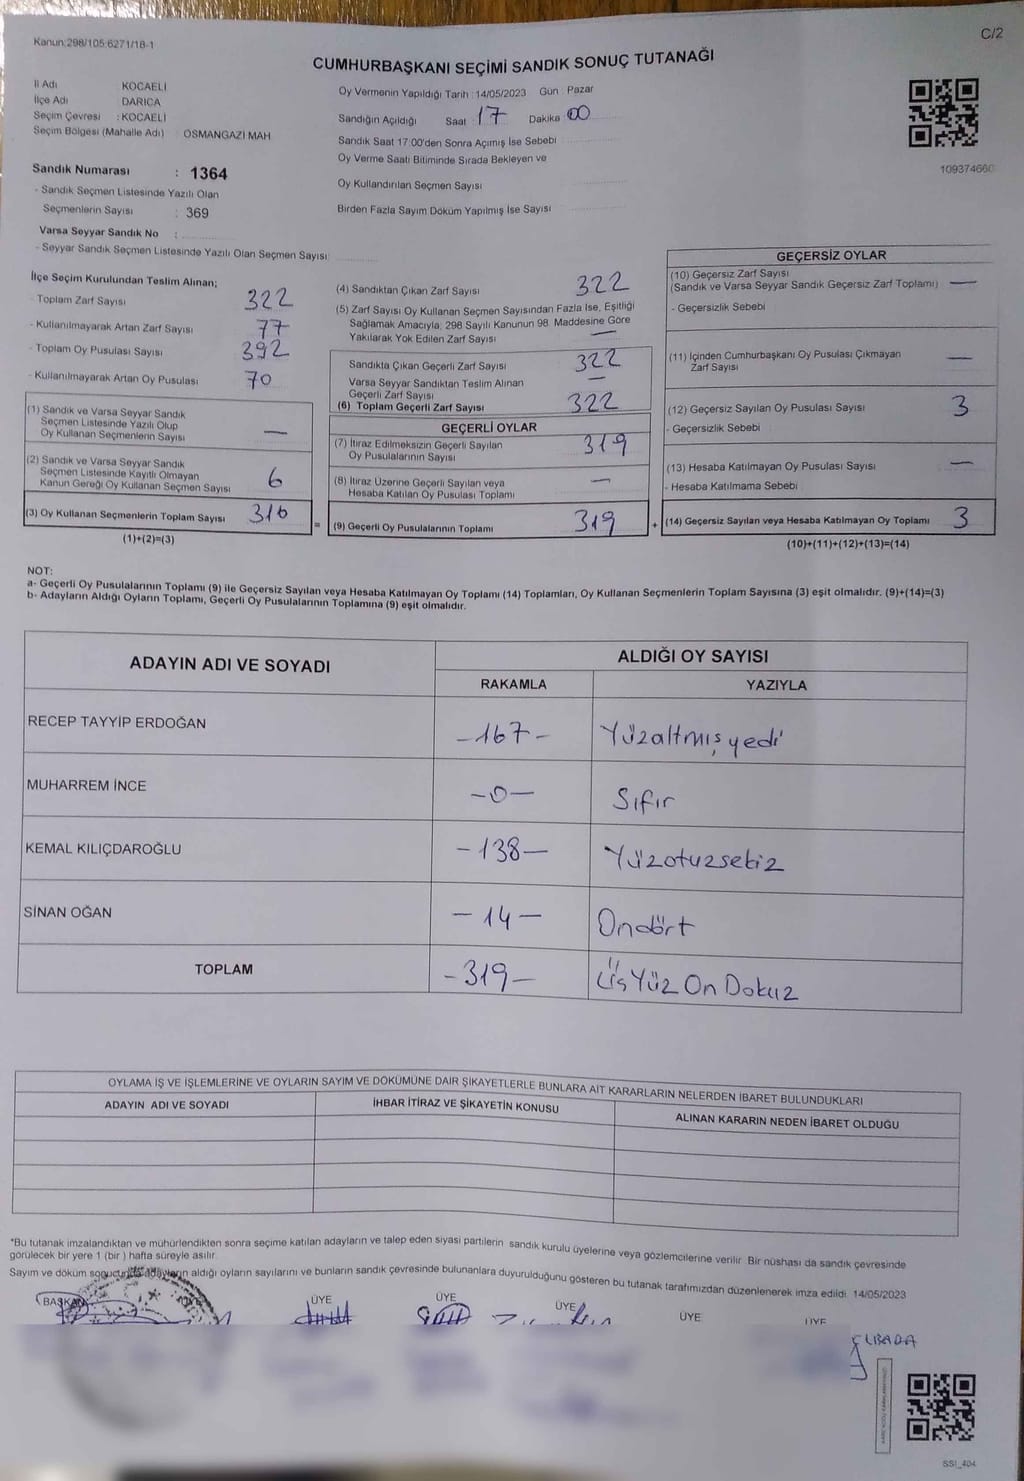 Kanun:298/105:6271/18-1
C/2
CUMHURBAŞKANI SEÇİMİ SANDIK SONUÇ TUTANAĞI
İl Adı : KOCAELİ
İlçe Adı : DARICA
Seçim Çevresi : KOCAELİ
Seçim Bölgesi (Mahalle Adı) : OSMANGAZİ MAH
Sandık Numarası : 1364
- Sandık Seçmen Listesinde Yazılı Olan
Seçmenlerin Sayısı : 369
Varsa Seyyar Sandık No :
- Seyyar Sandık Seçmen Listesinde Yazılı Olan Seçmen Sayısı:
Oy Vermenin Yapıldığı Tarih : 14/05/2023 Gün : Pazar
Sandığın Açıldığı Saat : 17 Dakika : 00
Sandık Saat 17:00'den Sonra Açımış İse Sebebi
Oy Verme Saati Bitiminde Sırada Bekleyen ve
Oy Kullandırılan Seçmen Sayısı
Birden Fazla Sayım Döküm Yapılmış İse Sayısı
109374660
İlçe Seçim Kurulundan Teslim Alınan;
- Toplam Zarf Sayısı 322
- Kullanılmayarak Artan Zarf Sayısı 77
- Toplam Oy Pusulası Sayısı 392
- Kullanılmayarak Artan Oy Pusulası 70
(1) Sandık ve Varsa Seyyar Sandık
Seçmen Listesinde Yazılı Olup
Oy Kullanan Seçmenlerin Sayısı —
(2) Sandık ve Varsa Seyyar Sandık
Seçmen Listesinde Kayıtlı Olmayan
Kanun Gereği Oy Kullanan Seçmen Sayısı 6
(3) Oy Kullanan Seçmenlerin Toplam Sayısı 316
(1)+(2)=(3)
(4) Sandıktan Çıkan Zarf Sayısı 322
(5) Zarf Sayısı Oy Kullanan Seçmen Sayısından Fazla İse, Eşitliği
Sağlamak Amacıyla; 298 Sayılı Kanunun 98. Maddesine Göre
Yakılarak Yok Edilen Zarf Sayısı —
Sandıkta Çıkan Geçerli Zarf Sayısı 322
Varsa Seyyar Sandıktan Teslim Alınan
Geçerli Zarf Sayısı —
(6) Toplam Geçerli Zarf Sayısı 322
GEÇERLİ OYLAR
(7) İtiraz Edilmeksizin Geçerli Sayılan
Oy Pusulalarının Sayısı 319
(8) İtiraz Üzerine Geçerli Sayılan veya
Hesaba Katılan Oy Pusulası Toplamı —
= (9) Geçerli Oy Pusulalarının Toplamı 319
GEÇERSİZ OYLAR
(10) Geçersiz Zarf Sayısı
(Sandık ve Varsa Seyyar Sandık Geçersiz Zarf Toplamı) —
- Geçersizlik Sebebi
(11) İçinden Cumhurbaşkanı Oy Pusulası Çıkmayan
Zarf Sayısı —
(12) Geçersiz Sayılan Oy Pusulası Sayısı 3
- Geçersizlik Sebebi
(13) Hesaba Katılmayan Oy Pusulası Sayısı —
- Hesaba Katılmama Sebebi
+ (14) Geçersiz Sayılan veya Hesaba Katılmayan Oy Toplamı 3
(10)+(11)+(12)+(13)=(14)
NOT:
a- Geçerli Oy Pusulalarının Toplamı (9) ile Geçersiz Sayılan veya Hesaba Katılmayan Oy Toplamı (14) Toplamları, Oy Kullanan Seçmenlerin Toplam Sayısına (3) eşit olmalıdır. (9)+(14)=(3)
b- Adayların Aldığı Oyların Toplamı, Geçerli Oy Pusulalarının Toplamına (9) eşit olmalıdır.
ADAYIN ADI VE SOYADI ALDIĞI OY SAYISI
RAKAMLA YAZIYLA
RECEP TAYYİP ERDOĞAN -167- Yüzaltmışyedi
MUHARREM İNCE -0- Sıfır
KEMAL KILIÇDAROĞLU -138- Yüzotuzsekiz
SİNAN OĞAN -14- Ondört
TOPLAM -319- ÜçYüz On Dokuz
OYLAMA İŞ VE İŞLEMLERİNE VE OYLARIN SAYIM VE DÖKÜMÜNE DAİR ŞİKAYETLERLE BUNLARA AİT KARARLARIN NELERDEN İBARET BULUNDUKLARI
ADAYIN ADI VE SOYADI İHBAR İTİRAZ VE ŞİKAYETİN KONUSU ALINAN KARARIN NEDEN İBARET OLDUĞU
*Bu tutanak imzalandıktan ve mühürlendikten sonra seçime katılan adayların ve talep eden siyasi partilerin sandık kurulu üyelerine veya gözlemcilerine verilir. Bir nüshası da sandık çevresinde
görülecek bir yere 1 (bir ) hafta süreyle asılır.
Sayım ve döküm sonucunda adayların aldığı oyların sayılarını ve bunların sandık çevresinde bulunanlara duyurulduğunu gösteren bu tutanak tarafımızdan düzenlenerek imza edildi. 14/05/2023
BAŞKAN ÜYE ÜYE ÜYE ÜYE ÜYE
SSI_404